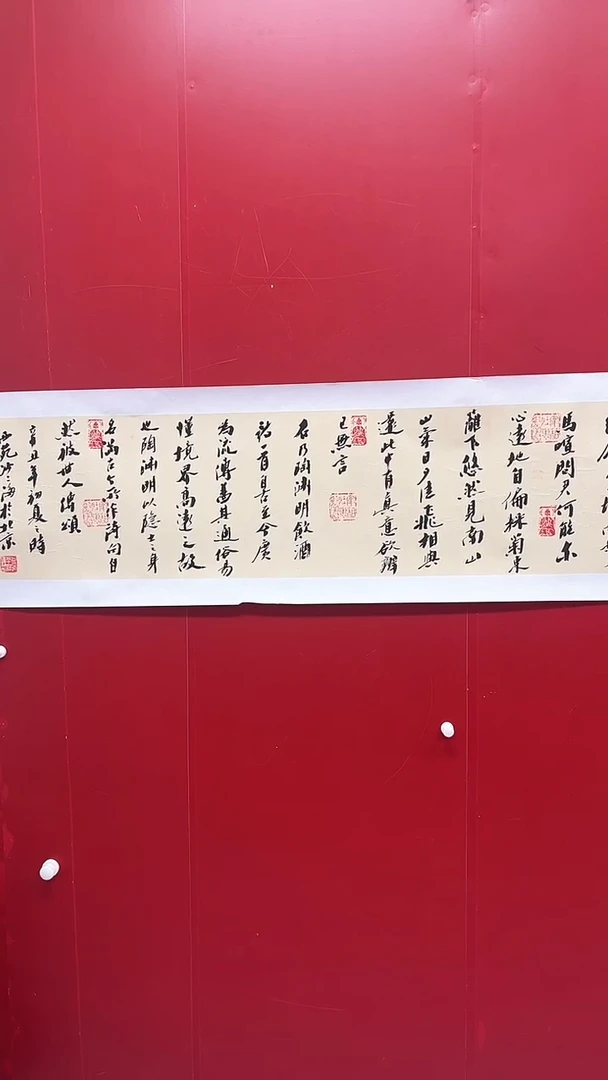 馬喧問君何能尔
心遠地自偏採菊東
籬下悠然見南山
山氣日夕佳飛相與
還此中有真意欲辯
已無言
右乃陶淵明飲酒
詩一首是古今廣
為流傳書其通俗易
懂境界高遠之故
也陶淵明以隱士之身
名作詩句自
然被世人傳頌
辛丑年初夏之時
於北京